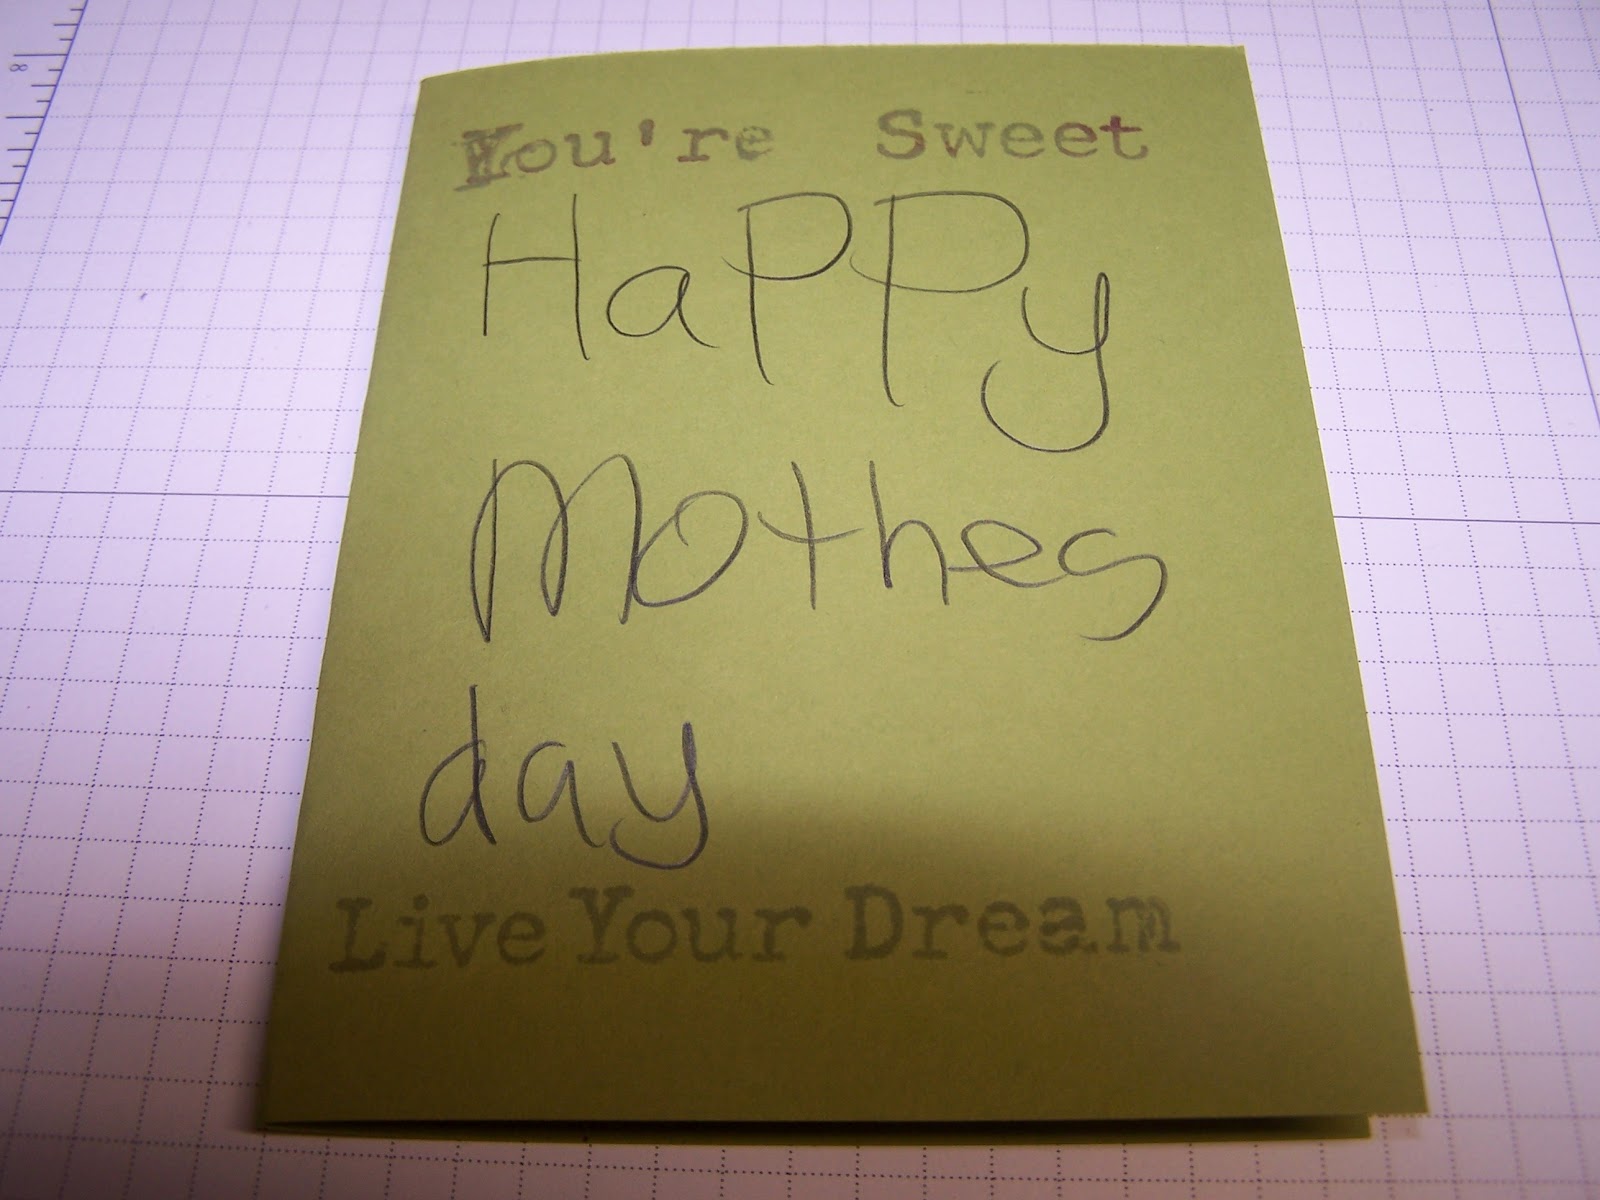 8
You're Sweet
HaPPy
Mothes
day
Live Your Dream